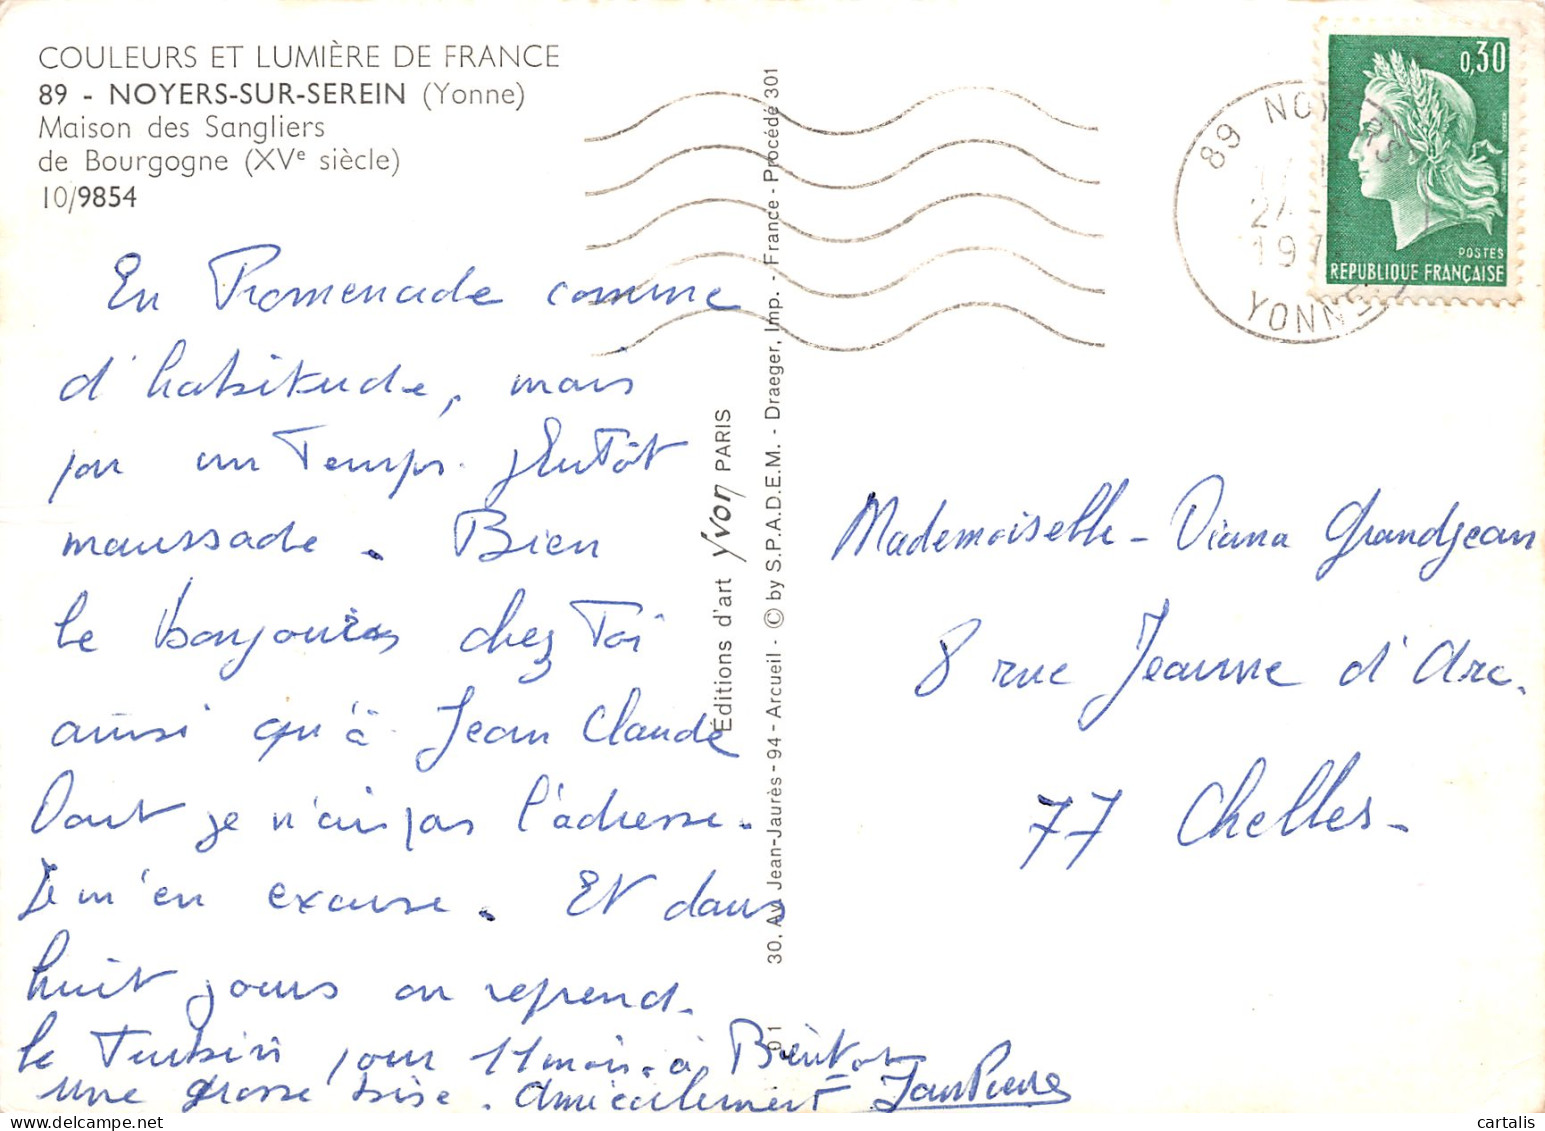 COULEURS ET LUMIÈRE DE FRANCE
89 - NOYERS-SUR-SEREIN (Yonne)
Maison des Sangliers
de Bourgogne (XVe siècle)
10/9854
En Promenade comme
d'habitude, mais
par un Temps plutôt
maussade. Bien
le bonjour chez Toi
ainsi qu'à Jean Claude
Dont je n'ai pas l'adresse.
Je m'en excuse. Et dans
huit jours on reprend
le Turbin pour 11 mois. à Bientôt
une grosse bise. Amicalement Jean Pierre
Editions d'art yvon PARIS
30, Av. Jean-Jaurès - 94 - Arcueil - © by S.P.A.D.E.M. - Draeger, Imp. - France - Procédé 301
89 NOYERS
YONNE
0,30
POSTES
REPUBLIQUE FRANÇAISE
Mademoiselle - Diana Grandjean
8 rue Jeanne d'Arc.
77 Chelles -
cartalis